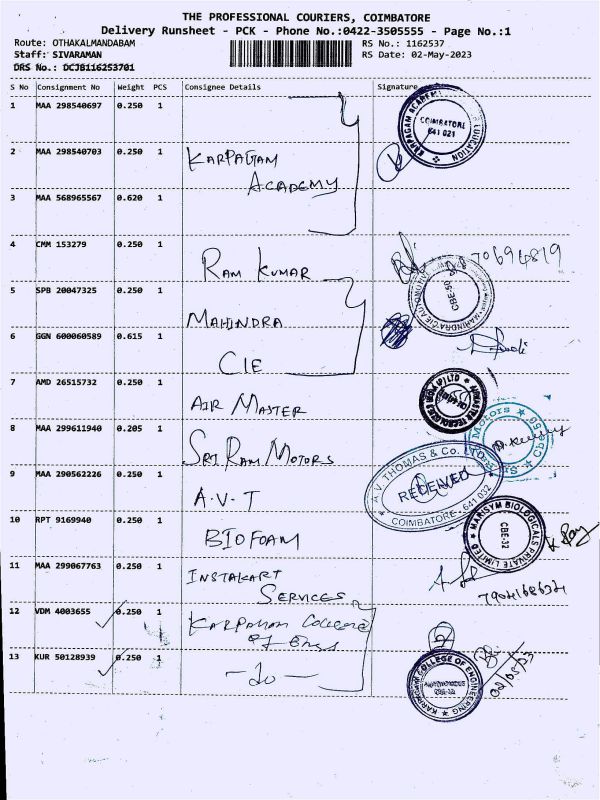 THE PROFESSIONAL COURIERS, COIMBATORE
Delivery Runsheet - PCK - Phone No.:0422-3505555 - Page No.:1
Route: OTHAKALMANDABAM
RS No.: 1162537
Staff: SIVARAMAN
RS Date: 02-May-2023
DRS No.: DCJB116253701
S No Consignment No Weight PCS Consignee Details Signature
1 MAA 298540697 0.250 1
COIMBATORE
641 021
2 MAA 298540703 0.250 1
KARPAGAM
ACADEMY
3 MAA 568965567 0.620 1
4 CMM 153279 0.250 1
RAM KUMAR
5 SPB 20047325 0.250 1
MAHINDRA
CBE-50
6 GGN 600060589 0.615 1
CIE
7 AMD 26515732 0.250 1
AIR MASTER
8 MAA 299611940 0.205 1
SRI RAM MOTORS
Motors
9 MAA 290562226 0.250 1
A.V.T
A.V. THOMAS & Co. LTD
RECEIVED
COIMBATORE - 641 032
10 RPT 9169940 0.250 1
BIOFOAM
MARISYM BIOLOGICALS PRIVATE LIMITED
CBE-32
11 MAA 299067763 0.250 1
INSTAKART
SERVICES
12 VDM 4003655 0.250 1
KARPAGAM College
of Engg
13 KUR 50128939 0.250 1
- do -
KARPAGAM COLLEGE OF ENGINEERING
02/05/23